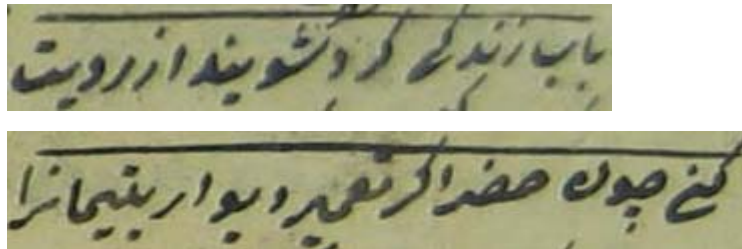 باب زندگی گرد نشویند از رویت
کنی چون خضر اگر تعمیر دیوار یتیمانرا